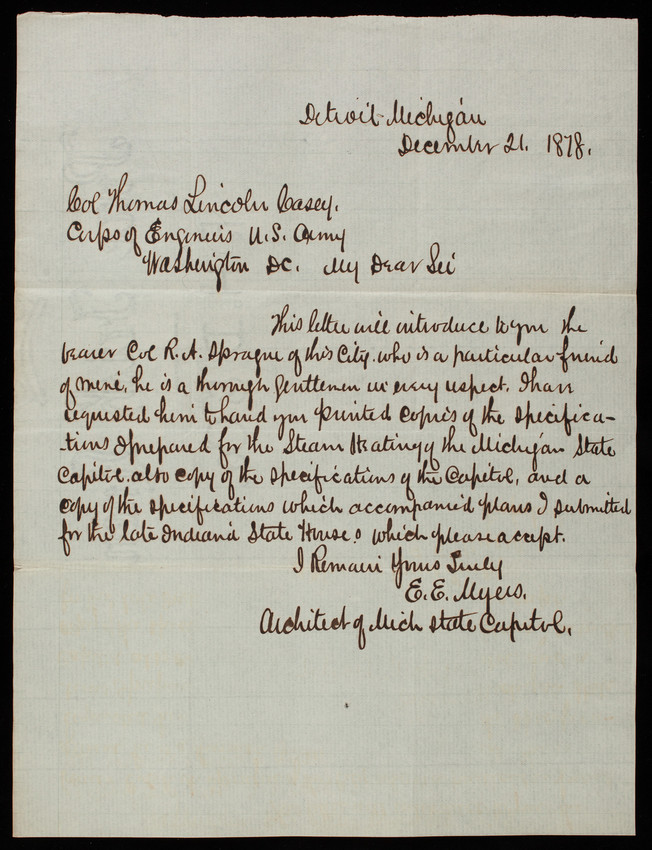 Detroit Michigan
December 21. 1878.
Col Thomas Lincoln Casey.
Corps of Engineers U.S. Army
Washington DC. My Dear Sir
This letter will introduce to you the
bearer Col R. A. Sprague of this City. who is a particular friend
of mine, he is a thorough gentlemen in every respect. I have
requested him to hand you printed copies of the specifica-
tions I prepared for the Steam Heating of the Michigan State
Capitol. also copy of the specifications of the Capitol, and a
copy of the specifications which accompanied plans I submitted
for the late Indiana State House. which please accept.
I Remain Yours Truly
E. E. Myers.
Architect of Mich State Capitol.